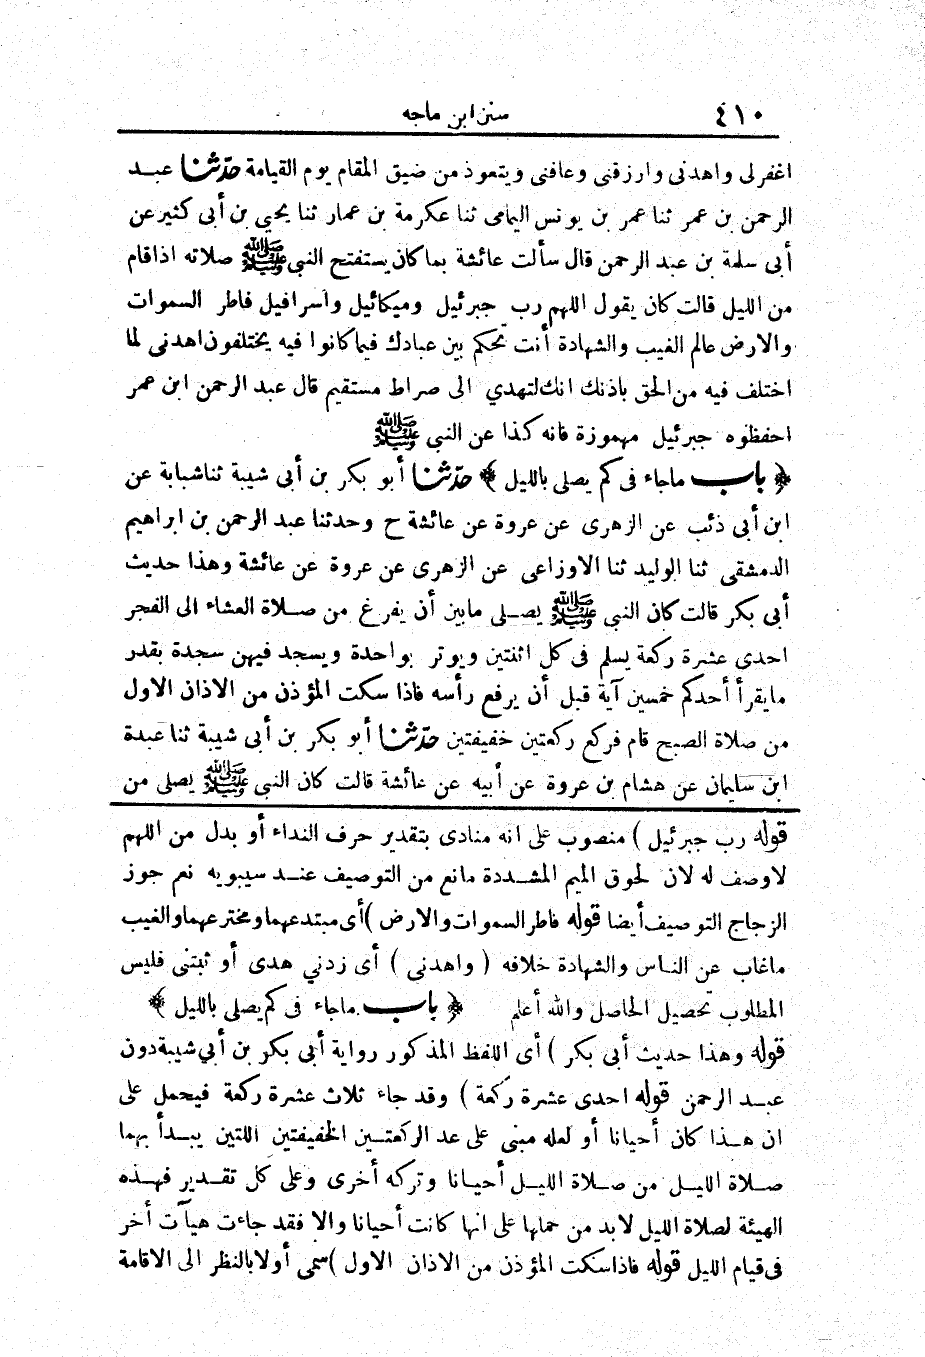 ٤١٠ سنن ابن ماجه
اغفرلى واهدنى وارزقنى وعافنى ويتعوذ من ضيق المقام يوم القيامة حدّثنا عبد
الرحمن بن عمر ثنا عمر بن يونس اليمامى ثنا عكرمة بن عمار ثنا يحيى بن أبى كثير عن
أبى سلمة بن عبد الرحمن قال سألت عائشة بما كان يستفتح النبى ﷺ صلاته اذا قام
من الليل قالت كان يقول اللهم رب جبرئيل وميكائيل واسرافيل فاطر السموات
والارض عالم الغيب والشهادة أنت تحكم بين عبادك فيما كانوا فيه يختلفون اهدنى لما
اختلف فيه من الحق باذنك انك لتهدي الى صراط مستقيم قال عبد الرحمن ابن عمر
احفظوه جبرئيل مهموزة فانه كذا عن النبى ﷺ
﴿ باب ماجاء فى كم يصلى بالليل ﴾ حدّثنا أبو بكر بن أبى شيبة ثنا شبابة عن
ابن أبى ذئب عن الزهرى عن عروة عن عائشة ح وحدثنا عبد الرحمن بن ابراهيم
الدمشقى ثنا الوليد ثنا الاوزاعى عن الزهرى عن عروة عن عائشة وهذا حديث
أبى بكر قالت كان النبى ﷺ يصلى مابين أن يفرغ من صلاة العشاء الى الفجر
احدى عشرة ركعة يسلم فى كل اثنتين ويوتر بواحدة ويسجد فيهن سجدة بقدر
مايقرأ أحدكم خمسين آية قبل أن يرفع رأسه فاذا سكت المؤذن من الاذان الاول
من صلاة الصبح قام فركع ركعتين خفيفتين حدّثنا أبو بكر بن أبى شيبة ثنا عبدة
ابن سليمان عن هشام بن عروة عن أبيه عن عائشة قالت كان النبى ﷺ يصلى من
قوله رب جبرئيل ) منصوب على انه منادى بتقدير حرف النداء أو بدل من اللهم
لاوصف له لان لحوق الميم المشددة مانع من التوصيف عند سيبويه نعم جوز
الزجاج التوصيف أيضا قوله فاطر السموات والارض ) أى مبتدعهما ومخترعهما والغيب
ماغاب عن الناس والشهادة خلافه ( واهدنى ) أى زدني هدى أو ثبتنى فليس
المطلوب تحصيل الحاصل والله أعلم ﴿ باب ماجاء فى كم يصلى بالليل ﴾
قوله وهذا حديث أبى بكر ) أى اللفظ المذكور رواية أبى بكر بن أبي شيبة دون
عبد الرحمن قوله احدى عشرة ركعة ) وقد جاء ثلاث عشرة ركعة فيحمل على
ان هذا كان أحيانا أو لعله مبنى على عد الركعتين الخفيفتين اللتين يبدأ بهما
صلاة الليل من صلاة الليل أحيانا وتركه أخرى وعلى كل تقدير فهذه
الهيئة لصلاة الليل لابد من حملها على انها كانت أحيانا والا فقد جاءت هيآت أخر
فى قيام الليل قوله فاذا سكت المؤذن من الاذان الاول ) سمى أولا بالنظر الى الاقامة